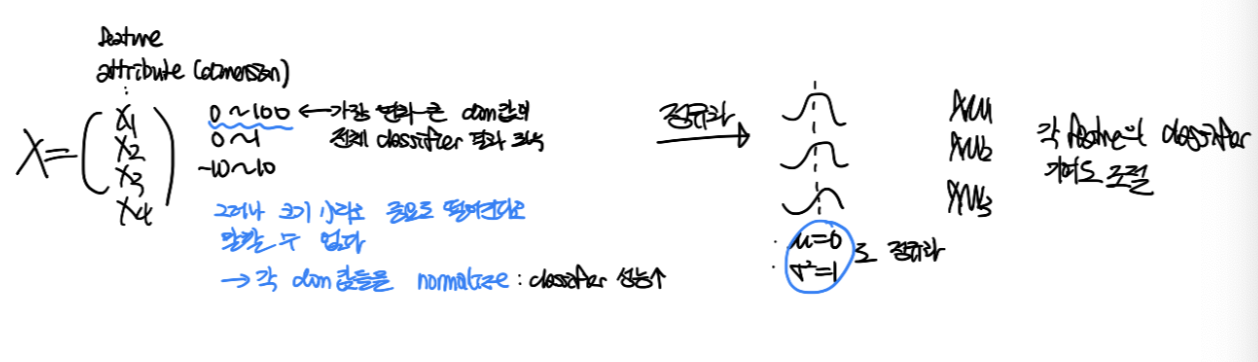 feature
attribute (dimension)
X = ( x1 x2 x3 x4 )
0 ~ 100 ← 가장 변화 큰 dim값이
0 ~ 1 전체 classifier 결과 좌우
-10 ~ 10
그러나 크기 작다고 중요도 떨어진다고
말할 수 없다
→ 각 dim 값들을 normalize : classifier 성능↑
정규화
μ=0
σ²=1
로 정규화
×w1
×w2
×w3
각 feature의 classifier
기여도 조절